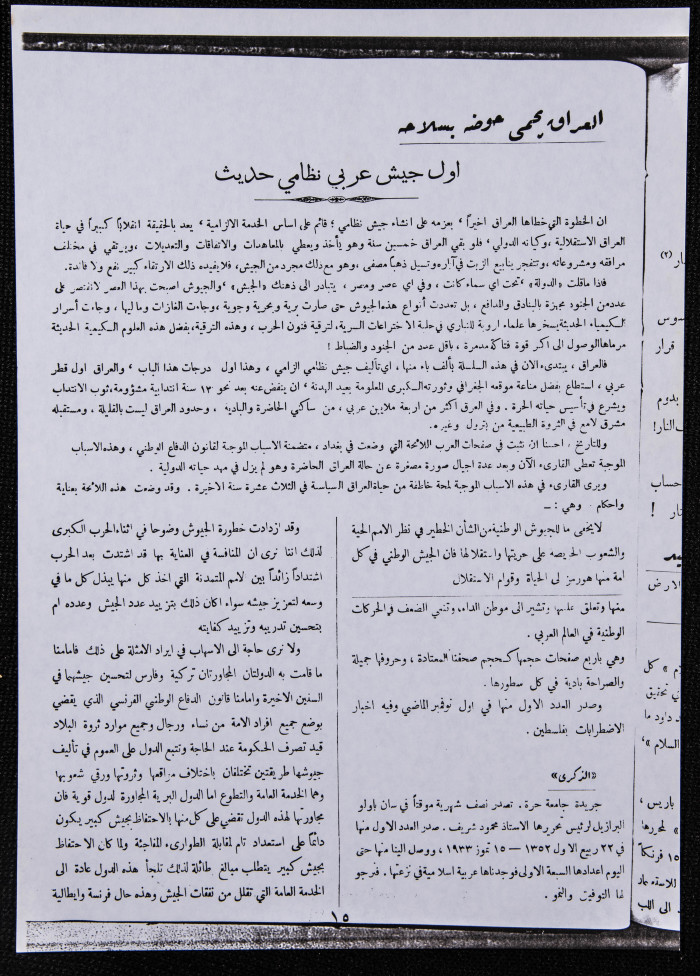 العراق يحمي حوضه بسلاحه
اول جيش عربي نظامي حديث
ان الخطوة التي خطاها العراق اخيراً، بعزمه على انشاء جيش نظامي؛ قائم على اساس الخدمة الالزامية، يعد بالحقيقة انقلاباً كبيراً في حياة
العراق الاستقلالية، وكيانه الدولي، فلو بقي العراق خمسين سنة وهو يأخذ ويعطي بالمعاهدات والاتفاقات والتعديلات، ويرتقي في مختلف
مرافقه ومشروعاته، وتتفجر ينابيع الزيت في آباره وتسيل ذهباً مصفى، وهو مع ذلك مجرد من الجيش، فلا يفيده ذلك الارتقاء كبير نفع ولا فائدة.
فاذا ماقلت «الدولة» تحت اي سماء كانت، وفي اي عصر ومصر، يتبادر الى ذهنك «الجيش» والجيوش اصبحت بهذا العصر لا تقتصر على
عدد من الجنود مجهزة بالبنادق والمدافع، بل تعددت أنواع هذه الجيوش حتى صارت برية وبحرية وجوية، وجاءت الغازات وما اليها، وجاءت أسرار
الكيمياء الحديثة يسخرها علماء اروبة للتباري في حلبة الاختراعات السرية، لترقية فنون الحرب، وهذه الترقية، بفضل هذه العلوم الكيمية الحديثة
مرماها الوصول الى اكبر قوة فتاكة مدمرة، باقل عدد من الجنود والضباط!
فالعراق، يبتدىء الان في هذه السلسلة بألف باء منها، اي تأليف جيش نظامي الزامي، وهذا اول درجات هذا الباب، والعراق اول قطر
عربي، استطاع بفضل مناعة موقعه الجغرافي وثورته الكبرى المعلومة بعيد الهدنة، ان ينفض عنه بعد نحو ١٣ سنة انتدابية مشؤومة، ثوب الانتداب
ويشرع في تأسيس حياته الحرة. وفي العراق اكثر من اربعة ملايين عربي، من ساكني الحاضرة والبادية، وحدود العراق ليست بالقليلة، ومستقبله
مشرق لامع في الثروة الطبيعية من بترول وغيره.
وللتاريخ، احببنا ان نثبت في صفحات العرب اللائحة التي وضعت في بغداد، متضمنة الاسباب الموجبة لقانون الدفاع الوطني، وهذه الاسباب
الموجبة تعطي القارىء الآن وبعد عدة اجيال صورة مصغرة عن حالة العراق الحاضرة وهو لم يزل في مهد حياته الدولية.
ويرى القارىء في هذه الاسباب الموجبة لمحة خاطفة من حياة العراق السياسة في الثلاث عشرة سنة الاخيرة. وقد وضعت هذه اللائحة بعناية
واحكام. وهي: —
لا يخفى ما للجيوش الوطنية من الشأن الخطير في نظر الامم الحية
والشعوب الحريصه على حريتها واستقلالها فان الجيش الوطني في كل
امة منها هو رمز الى الحياة وقوام الاستقلال
منها وتعلق عليها وتشير الى موطن الداء، وتنعي الضعف في الحركات
الوطنية في العالم العربي.
وهي باربع صفحات حجمها كحجم صحفنا المعتادة، وحروفها جميلة
والصراحة بادية في كل سطورها.
وصدر العدد الاول منها في اول نوفمبر الماضي وفيه اخبار
الاضطرابات بفلسطين.
«الذكرى»
جريدة جامعة حرة. تصدر نصف شهرية موقتاً في سان باولو
البرازيل لرئيس تحريرها الاستاذ محمود شريف. صدر العدد الاول منها
في ٢٢ ربيع الاول ١٣٥٢ — ١٥ تموز ١٩٣٣، ووصل الينا منها حتى
اليوم اعدادها السبعة الاولى فوجدناها عربية اسلامية في نزعتها. فنرجو
لها التوفيق والنمو.
وقد ازدادت خطورة الجيوش وضوحاً في اثناء الحرب الكبرى
لذلك اننا نرى ان المنافسة في العناية بها قد اشتدت بعد الحرب
اشتداداً زائداً بين الامم المتمدنة التي اخذ كل منها يبذل كل ما في
وسعه لتعزيز جيشه سواء اكان ذلك بتزييد عدد الجيش وعدده ام
بتحسين تدريبه وتزييد كفايته
ولا نرى حاجة الى الاسهاب في ايراد الامثلة على ذلك فامامنا
ما قامت به الدولتان المجاورتان تركية وفارس لتحسين جيشهما في
السنين الاخيرة وامامنا قانون الدفاع الوطني الفرنسي الذي يقضي
بوضع جميع افراد الامة من نساء ورجال وجميع موارد ثروة البلاد
قيد تصرف الحكومة عند الحاجة وتتبع الدول على العموم في تأليف
جيوشها طريقتين تختلفان باختلاف مواقعها وثروتها ورقي شعوبها
وهما الخدمة العامة والتطوع اما الدول البرية المجاورة لدول قوية فان
مجاورتها لهذه الدول تقضي على كل منها بالاحتفاظ بجيش كبير يكون
دائماً على استعداد تام لمقابلة الطوارىء المفاجئة ولما كان الاحتفاظ
بجيش كبير يتطلب مبالغ طائلة لذلك تلجأ هذه الدول عادة الى
الخدمة العامة التي تقلل من نفقات الجيش وهذه حال فرنسة وايطالية
١٥
(٢)
قرار
بدوم
النار!
حساب
الارض
كل
تحقيق
داود ما
السلام»،
باريس،
لمحررها
١٥ فرنكاً
الى اللب